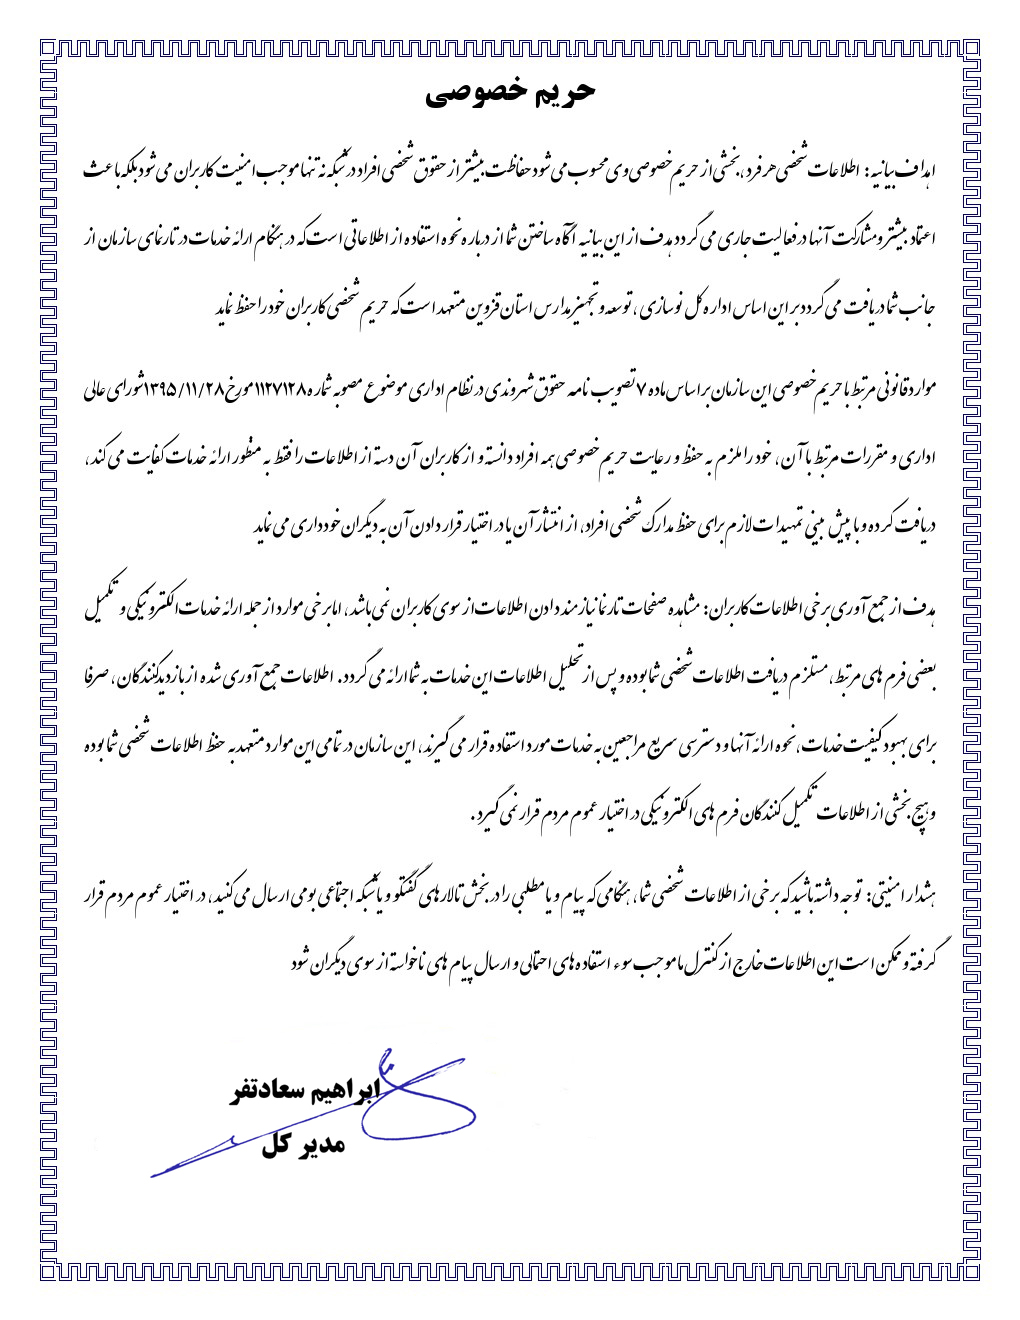 حریم خصوصی
اهداف بیانیه: اطلاعات شخصی هر فرد، بخشی از حریم خصوصی وی محسوب می شود حفاظت بیشتر از حقوق شخصی افراد در شبکه نه تنها موجب امنیت کاربران می شود بلکه باعث
اعتماد بیشتر و مشارکت آنها در فعالیت جاری می گردد هدف از این بیانیه آگاه ساختن شما از درباره نحوه استفاده از اطلاعاتی است که در هنگام ارائه خدمات در تارنمای سازمان از
جانب شما دریافت می گردد بر این اساس اداره کل نوسازی، توسعه و تجهیز مدارس استان قزوین متعهد است که حریم شخصی کاربران خود را حفظ نماید
موارد قانونی مرتبط با حریم خصوصی این سازمان بر اساس ماده ۷ تصویب نامه حقوق شهروندی در نظام اداری موضوع مصوبه شماره ۱۱۲۷۱۲۸ مورخ ۱۳۹۵/۱۱/۲۸ شورای عالی
اداری و مقررات مرتبط با آن، خود را ملزم به حفظ و رعایت حریم خصوصی همه افراد دانسته و از کاربران آن دسته از اطلاعات را فقط به منظور ارائه خدمات کفایت می کند،
دریافت کرده و با پیش بینی تمهیدات لازم برای حفظ مدارک شخصی افراد، از انتشار آن یا در اختیار قرار دادن آن به دیگران خودداری می نماید
هدف از جمع آوری برخی اطلاعات کاربران: مشاهده صفحات تارنما نیازمند دادن اطلاعات از سوی کاربران نمی باشد، اما برخی موارد از جمله ارائه خدمات الکترونیکی و تکمیل
بعضی فرم های مرتبط، مستلزم دریافت اطلاعات شخصی شما بوده و پس از تحلیل اطلاعات این خدمات به شما ارائه می گردد. اطلاعات جمع آوری شده از بازدیدکنندگان، صرفا
برای بهبود کیفیت خدمات، نحوه ارائه آنها و دسترسی سریع مراجعین به خدمات مورد استفاده قرار می گیرند، این سازمان در تمامی این موارد متعهد به حفظ اطلاعات شخصی شما بوده
و هیچ بخشی از اطلاعات تکمیل کنندگان فرم های الکترونیکی در اختیار عموم مردم قرار نمی گیرد.
هشدار امنیتی: توجه داشته باشید که برخی از اطلاعات شخصی شما، هنگامی که پیام و یا مطلبی را در بخش تالارهای گفتگو و یا شبکه اجتماعی بومی ارسال می کنید، در اختیار عموم مردم قرار
گرفته و ممکن است این اطلاعات خارج از کنترل ما موجب سوء استفاده های احتمالی و ارسال پیام های ناخواسته از سوی دیگران شود
ابراهیم سعادتفر
مدیر کل